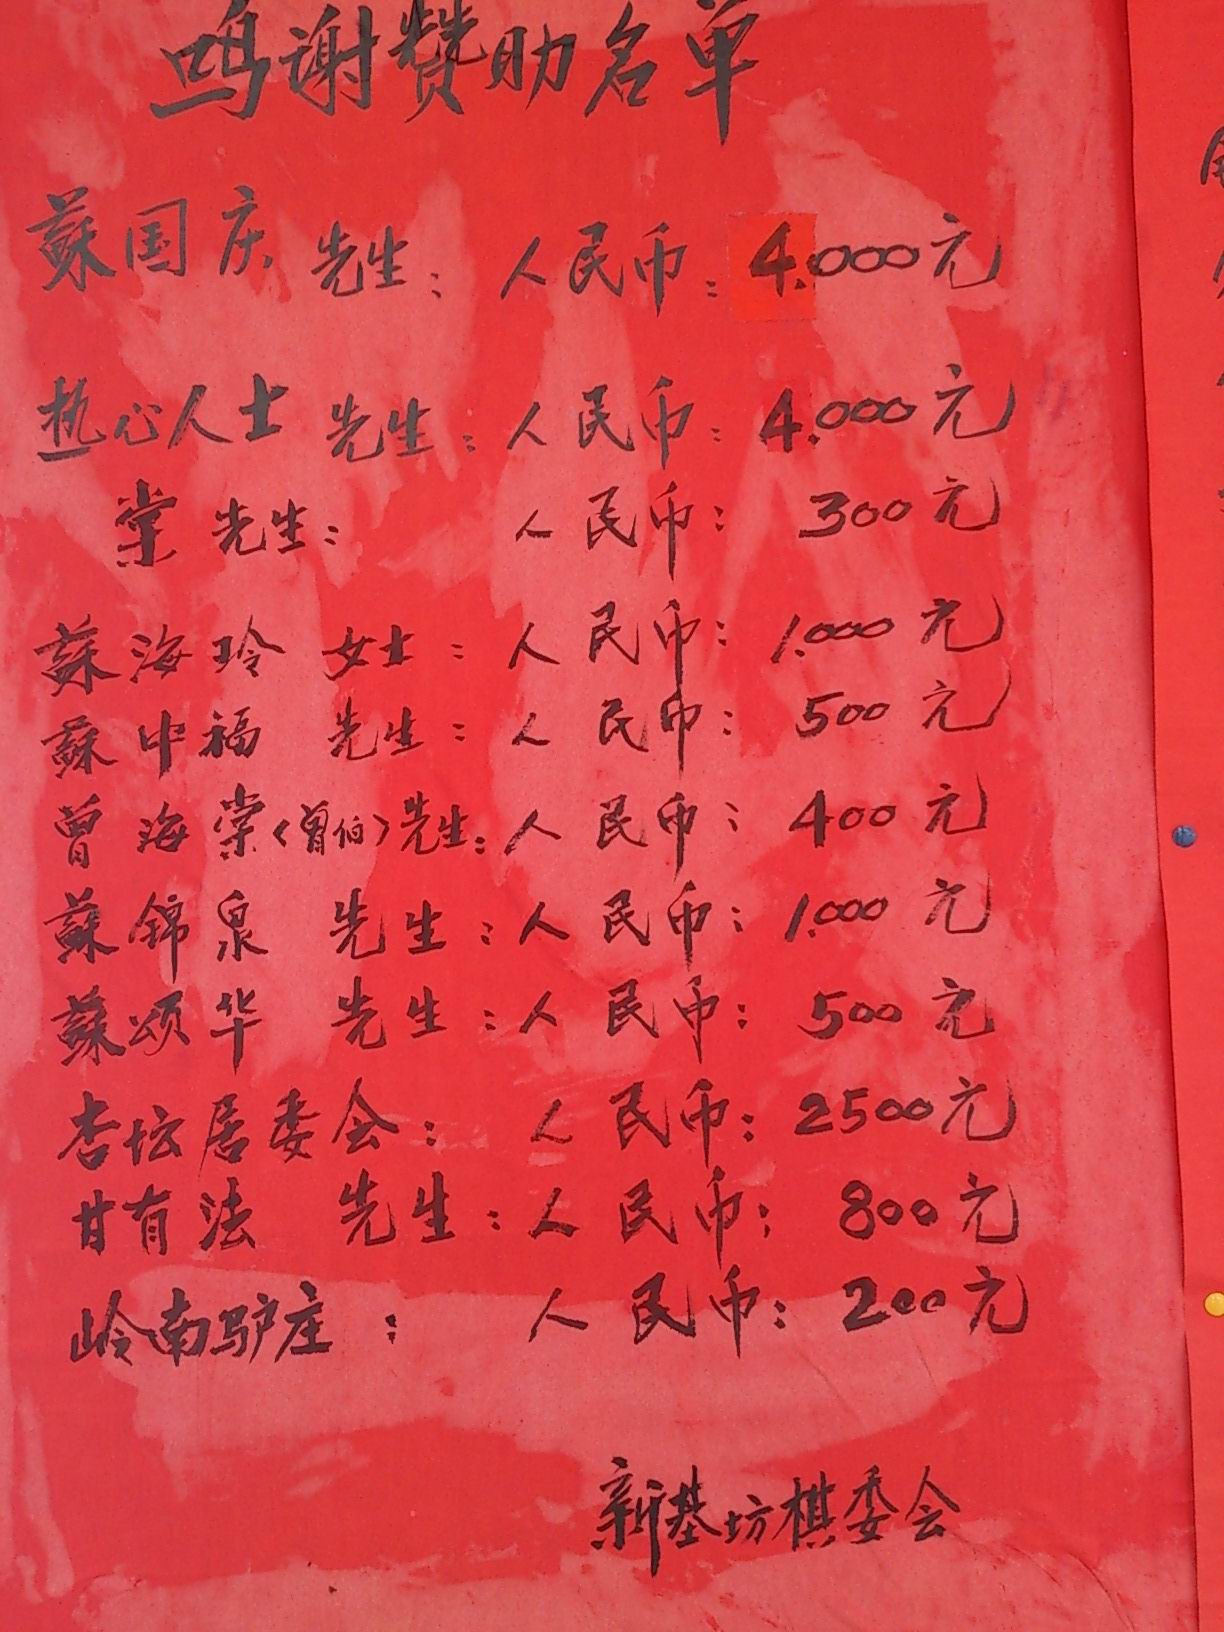 鸣谢赞助名单
蘇国庆先生：人民币：4.000元
热心人士先生：人民币：4.000元
棠先生：人民币：300元
蘇海玲女士：人民币：1.000元
蘇中福先生：人民币：500元
曾海棠〈曾伯〉先生：人民币：400元
蘇锦泉先生：人民币：1.000元
蘇颂华先生：人民币：500元
杏坛居委会：人民币：2500元
甘有法先生：人民币：800元
岭南驴庄：人民币：200元
新基坊棋委会